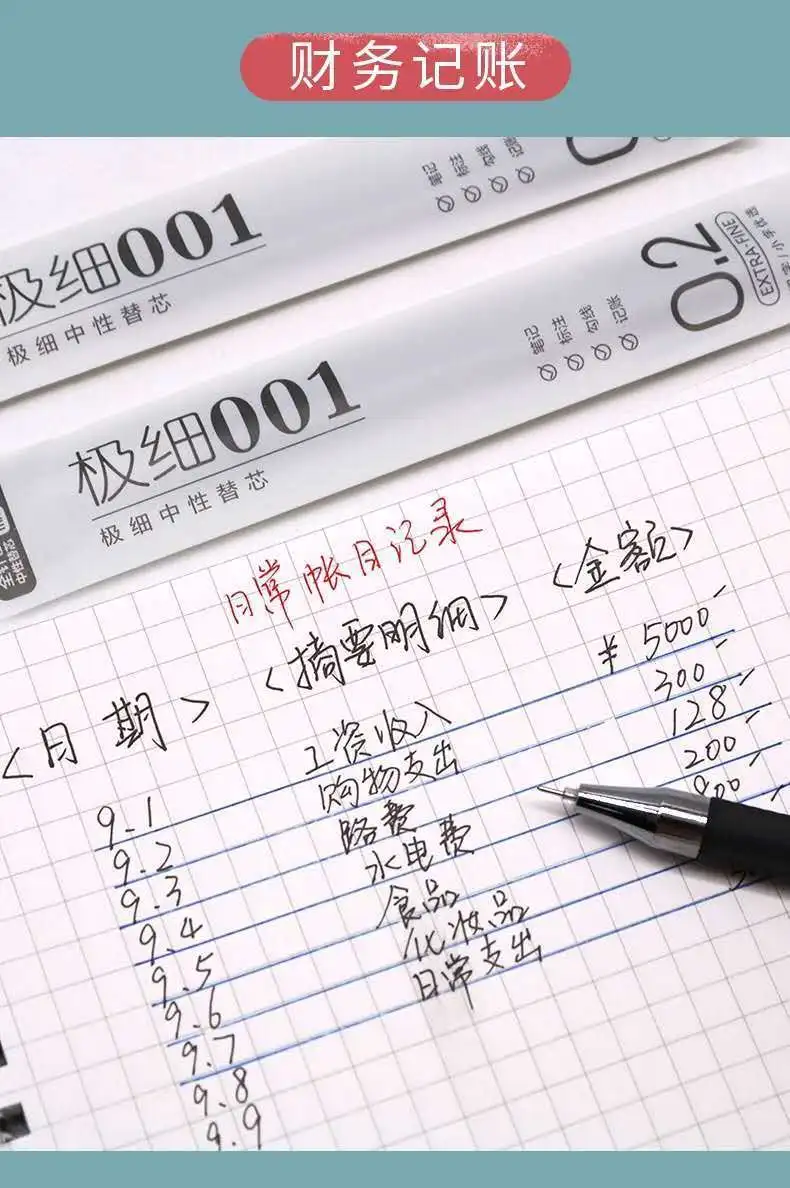 财务记账
笔记 标注 勾线 记账
极细001
极细中性替芯
0.2
EXTRA-FINE
笔记 标注 勾线 记账
极细001
极细中性替芯
日常帐目记录
<日期> <摘要明细> <金额>
9.1 工资收入 ¥5000
9.2 购物支出 300
9.3 路费 128
9.4 水电费 200
9.5 食品
9.6 化妆品
9.7 日常支出
9.8
9.9